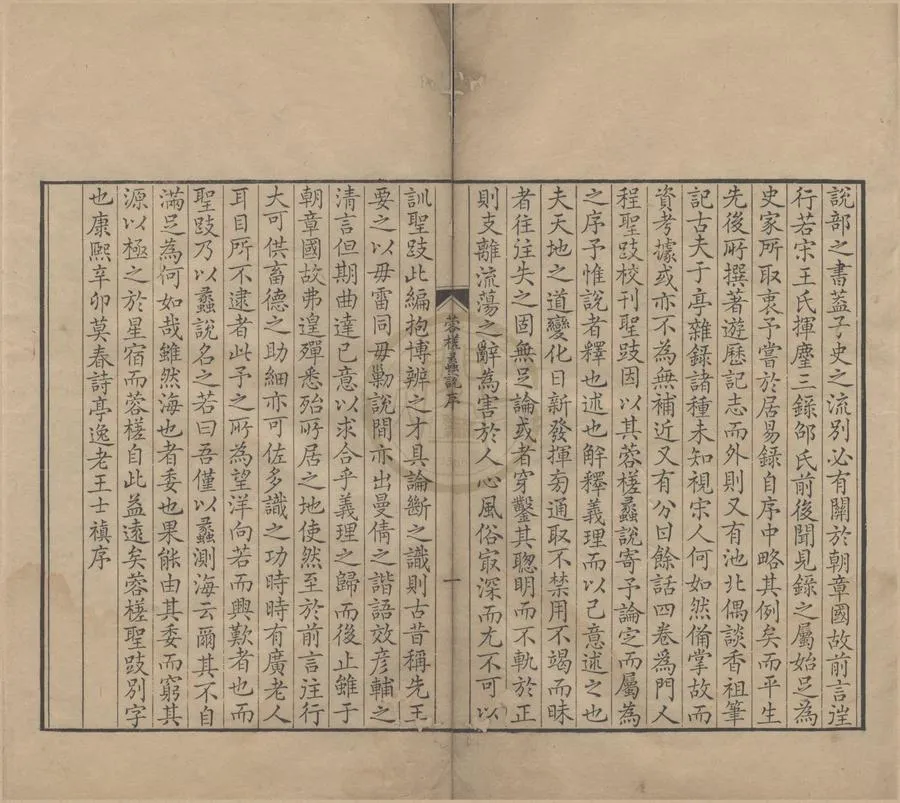 說部之書蓋子史之流別必有關於朝章國故前言徃
行若宋王氏揮麈三錄邵氏前後聞見錄之屬始足為
史家所取衷予嘗於居易錄自序中略其例矣而平生
先後所撰著遊歷記志而外則又有池北偶談香祖筆
記古夫于亭雜錄諸種未知視宋人何如然備掌故而
資考據或亦不為無補近又有分日餘話四卷為門人
程聖跂校刊聖跂因以其蓉槎蠡說寄予論定而屬為
之序予惟說者釋也述也解釋義理而以己意述之也
夫天地之道變化日新發揮旁通取不禁用不竭而昧
者往往失之固無足論或者穿鑿其聰明而不軌於正
則支離流蕩之辭為害於人心風俗㝡深而尤不可以
蓉槎蠡說序
一
訓聖跂此編抱博辨之才具論斷之識則古昔稱先王
要之以毋雷同毋勦說間亦出曼倩之諧語效彥輔之
清言但期曲達已意以求合乎義理之歸而後止雖于
朝章國故弗遑殫悉殆所居之地使然至於前言往行
大可供畜德之助細亦可佐多識之功時時有廣老人
耳目所不逮者此予之所為望洋向若而興歎者也而
聖跂乃以蠡說名之若曰吾僅以蠡測海云爾其不自
滿足為何如哉雖然海也者委也果能由其委而窮其
源以極之於星宿而蓉槎自此益遠矣蓉槎聖跂別字
也康熙辛卯莫春詩亭逸老王士禛序